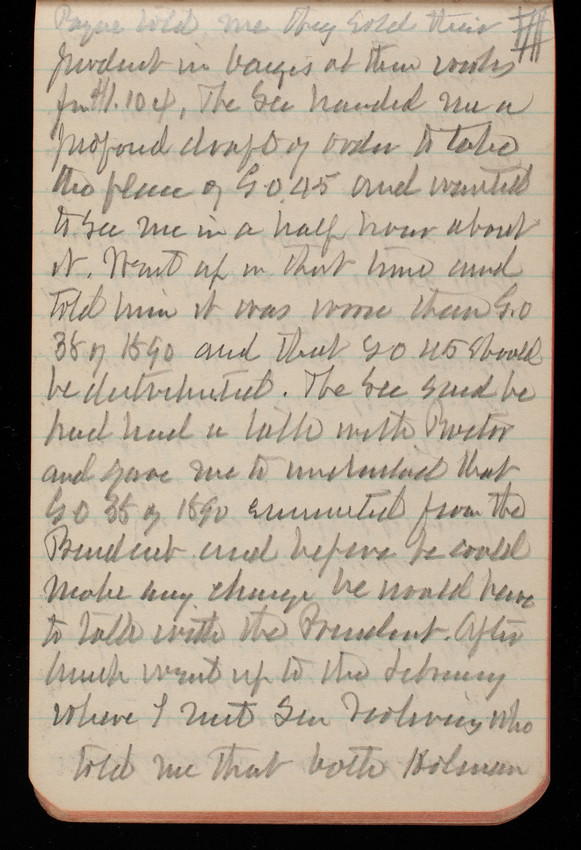 Payne told me they sold their
product in barges at their works
for $1.10 cy, The Sec handed me a
proposed draft of order to take
the place of G O 45 and wanted
to see me in a half hour about
it. Went up in that time and
told him it was worse than G.O
38 of 1890 and that G O 45 should
be distributed. The Sec said he
had had a talk with Proctor
and gave me to understand that
G O 38 of 1890 emanated from the
President and before he could
make any change he would have
to talk with the President. After
lunch went up to the Library
where I met Gen who
told me that both Holman